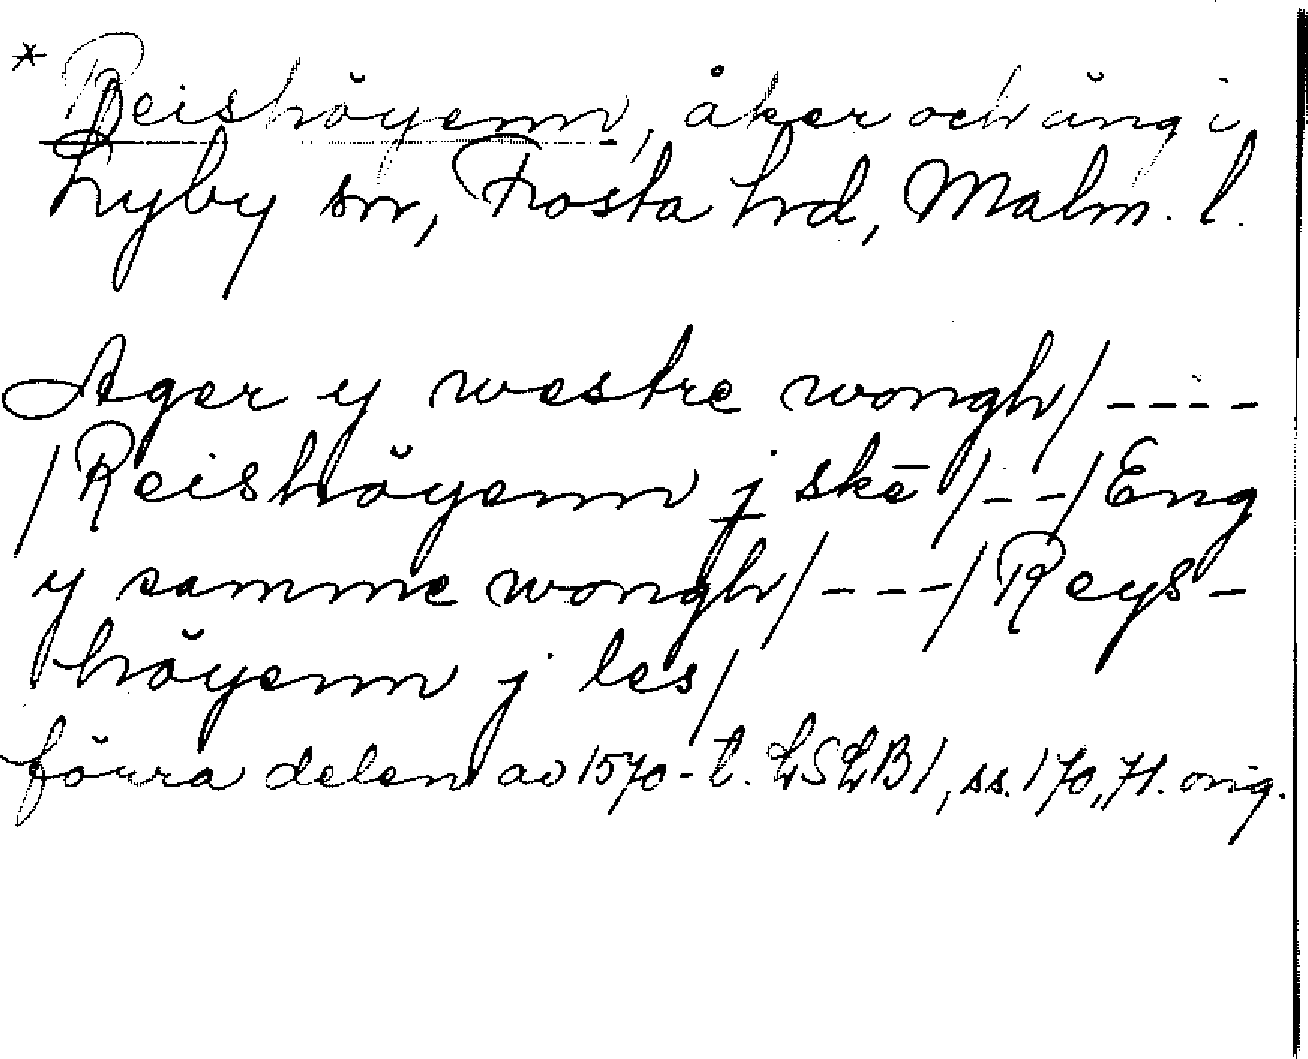 * Reishöyenn, åker och äng i
Lyby sn, Frosta hd, Malm. l.
Ager y westre wongh/ ----
/Reishöyenn j skē /--/ Eng
y samme wongh/ ---/ Reys-
höyenn j les/
förra delen av 1570-t. LSLB1, ss. 170, 71. orig.